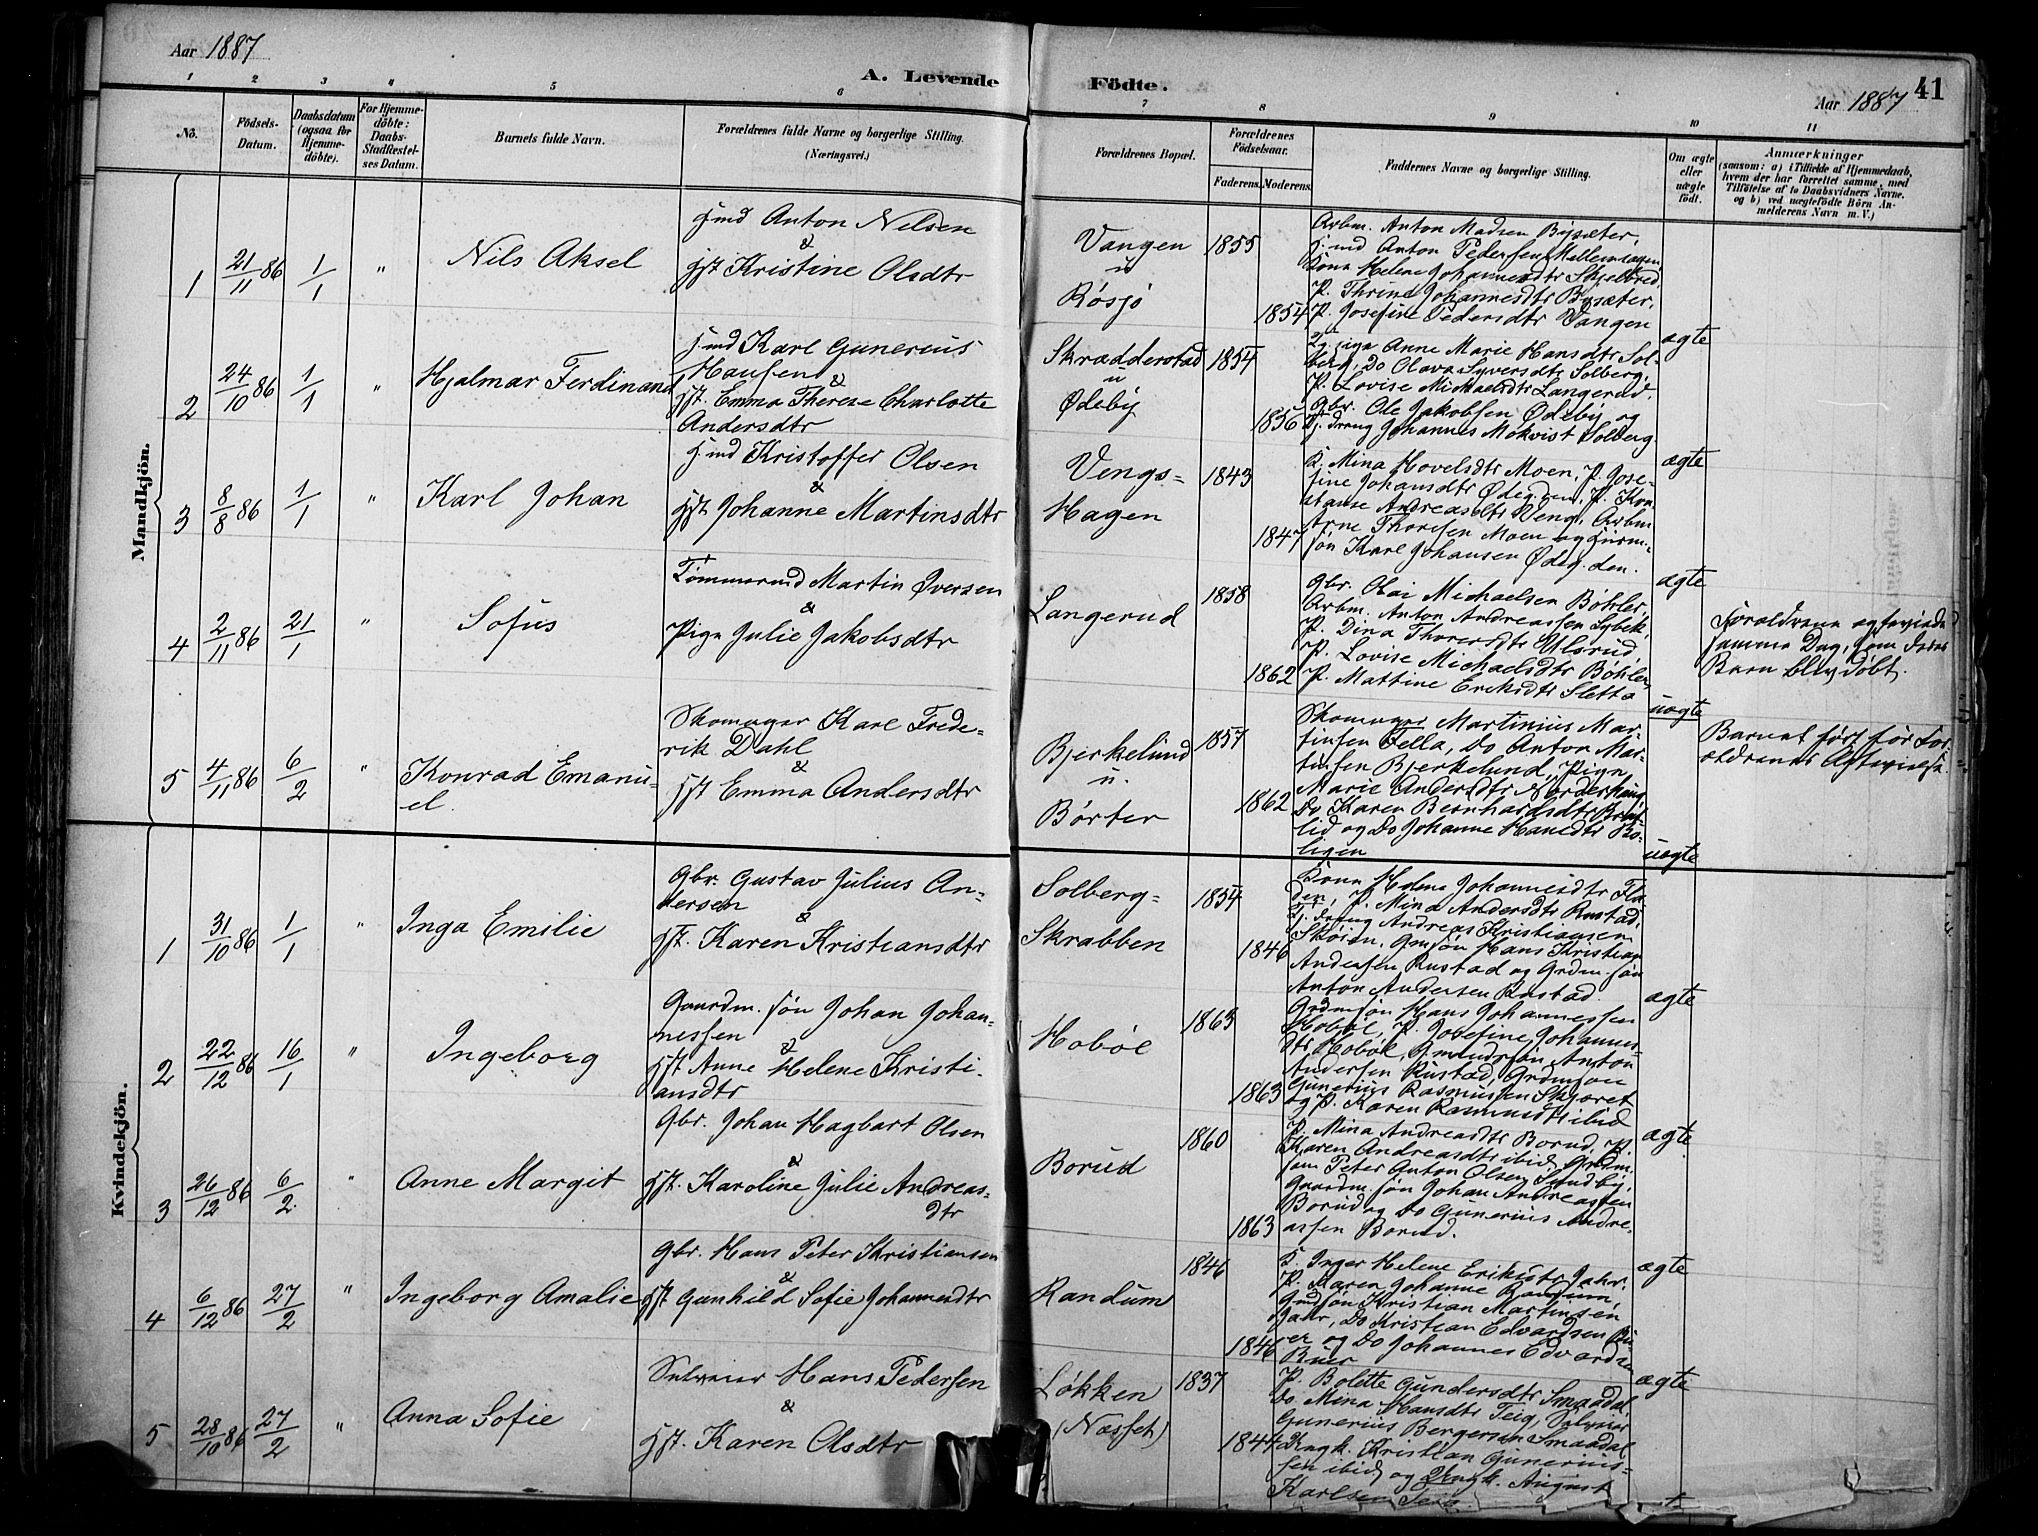 Aar 1887
A. Levende
Födte.
Aar 1887
41
1 2 3 4 5 6 7 8 9 10 11
No.
Födsels-
Datum.
Daabsdatum
(ogsaa for
Hjemme-
døbte).
For Hjemme-
döbte:
Daabs-
Stadfæstel-
ses Datum.
Barnets fulde Navn.
Forældrenes fulde Navne og borgerlige Stilling.
(Næringsvei.)
Forældrenes Bopæl.
Forældrenes
Födselsaar.
Faderens. Moderens.
Faddernes Navne og borgerlige Stilling.
Om ægte
eller
uægte
födt.
Anmærkninger
(saasom: a) i Tilfælde af Hjemmedaab,
hvem der har forrettet samme, med
Tilföielse af to Daabsvidners Navne,
og b) ved uægtefödte Börn An-
melderens Navn m. V.)
Mandkjön.
1
21/11 86
1/1
"
Nils Aksel
Anton Nilsen
&
Kristine Olsdtr
Vangen
u
Røsjø
1855
1854
Arbm. Anton Madsen Bysæter,
Anton Pedersen
Kona Helene Johannesdtr
P. Thrine Johannesdtr Bysæter,
P. Josefine Pedersdtr Vangen
ægte
2
24/10 86
1/1
"
Hjalmar Ferdinand
Karl Gunerius
Hansen
&
Emma Therese Charlotte
Andersdtr
Skrædderstad
u
Ødeby
1854
1856
Anne Marie Hansdtr Sol-
berg, Do Olava Syversdtr Solberg,
P. Lovise Michaelsdtr Langerud,
Gbr. Ole Jakobsen Ødeby og
Johannes Mokvist Solberg
ægte
3
8/8 86
1/1
"
Karl Johan
Kristoffer Olsen
&
Johanne Martinsdtr
Vengs-
Hagen
1843
1847
K. Mina Hovelsdtr Moen, P. Jose-
fine Johansdtr Ødeg.den, P. Kon-
stanse Andreasdtr Veng, Arbm
Arne Thoresen Moen og
søn Karl Johansen Ødeg.den.
ægte
4
2/11 86
21/1
"
Sofus
Tømmermd Martin Iversen
&
Pige Julie Jakobsdtr
Langerud
1858
1862
Gbr. Olai Michaelsen Bøhler,
Arbm. Anton Andreassen Lybek,
P. Dina Thoresdtr Ulsrud,
P. Lovise Michaelsdtr Bøhler,
P. Mattine Eriksdtr Sletta
uægte
Forældrene ægteviede
samme Dag, som deres
Barn blev døbt.
5
4/11 86
6/2
"
Konrad Emanu-
el.
Skomager Karl Frede-
rik Dahl
&
Emma Andersdtr
Bjerkelund
u.
Børter
1857
1862
Skomager Martinius Mar-
tinsen Fella, Do Anton Mar-
tinsen Bjerkelund, Pige
Marie Andersdtr Norderhaug
Do Karen Bernhardsdtr
lid og Do Johanne Hansdtr Bo-
ligen
uægte
Barnet født før For-
ældrenes Ægtevielse.
Kvindekjön.
1
31/10 86
1/1
"
Inga Emilie
Gbr. Gustav Julius An-
dersen
&
Karen Kristiansdtr
Solberg-
Skrabben
1854
1846
Kona Helene Johannesdtr Fla-
den, P. Mina Andersdtr Rustad,
Tj. dreng Andreas Kristiansen
Skøien, Gmsøn Hans Kristian
Andersen Rustad og Grdm. søn
Anton Andersen Rustad.
ægte
2
22/12 86
16/1
"
Ingeborg
Gaardm. søn Johan Johan-
nessen
&
Anne Helene Kristi-
ansdtr
Hobøl
1863
1863
Grdmsøn Hans Johannessen
Hobøl, P. Josefine Johannes-
dtr Hobøl, Anton
Andersen Rustad, Grdmsøn
Gunerius Rasmussen Skjøret
og P. Karen Rasmusdtr ibid
ægte
3
26/12 86
6/2
"
Anne Margit
Gbr. Johan Hagbart Olsen
&
Karoline Julie Andreas-
dtr
Borud
1860
1863
P. Mina Andreasdtr Borud, P.
Karen Andreasdtr ibid, Grdm.
søn Peter Anton Olsen Sundby,
Gaardm. søn Johan Andreassen
Borud og Do Gunerius Andre-
assen Borud.
ægte
4
6/12 86
27/2
"
Ingeborg Amalie
Gbr. Hans Peter Kristiansen
&
Gunhild Sofie Johannesdtr
Randum
1846
1846
K. Inger Helene Eriksdtr Jahr,
P. Maren Johanne Randum,
Gmdsøn Kristian Martinsen
Jahr, Do Kristian Edvardsen Bu-
er og Do Johannes Edvardsen
Buer
ægte
5
28/10 86
27/2
"
Anna Sofie
Selveier Hans Pedersen
&
Karen Olsdtr
Løkken
(Næsset)
1837
1844
P. Bolette Gundersdtr Smaadal
Do Mina Hansdtr Teig, Selveier
Gunerius Bergersen Smaadal
Ungk. Kristian Gunerius-
sen ibid og Ungk. August
Karlsen Teig